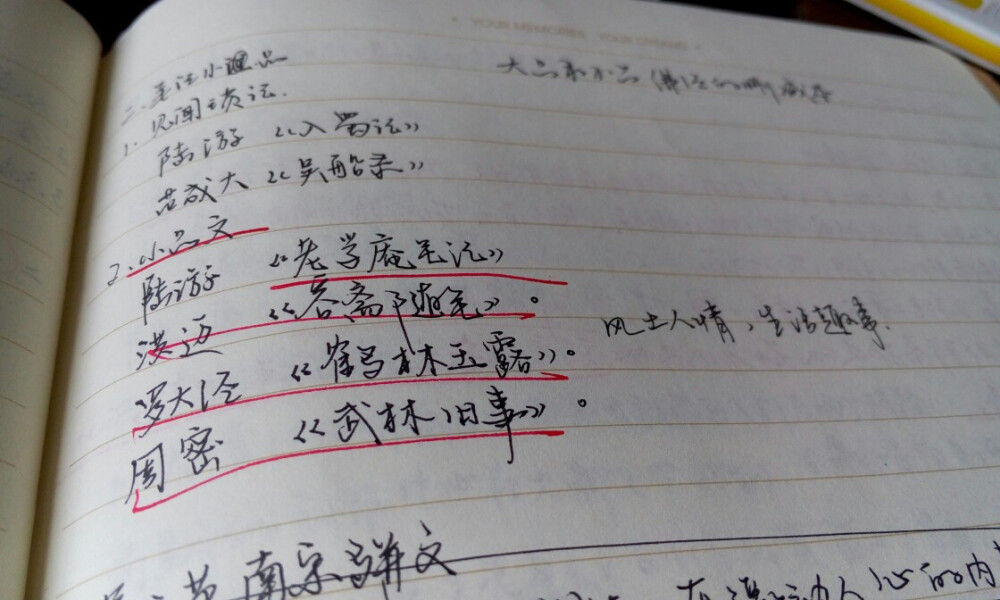 YOUR MEMORIES
二、笔记小品
大品和小品 佛经的
1. 见闻琐记.
陆游 《入蜀记》
范成大《吴船录》
2. 小品文
陆游 《老学庵笔记》
洪迈 《容斋随笔》。
风土人情，生活趣事.
罗大经 《鹤林玉露》。
周密 《武林旧事》。
节 南宋骈文
人心的内